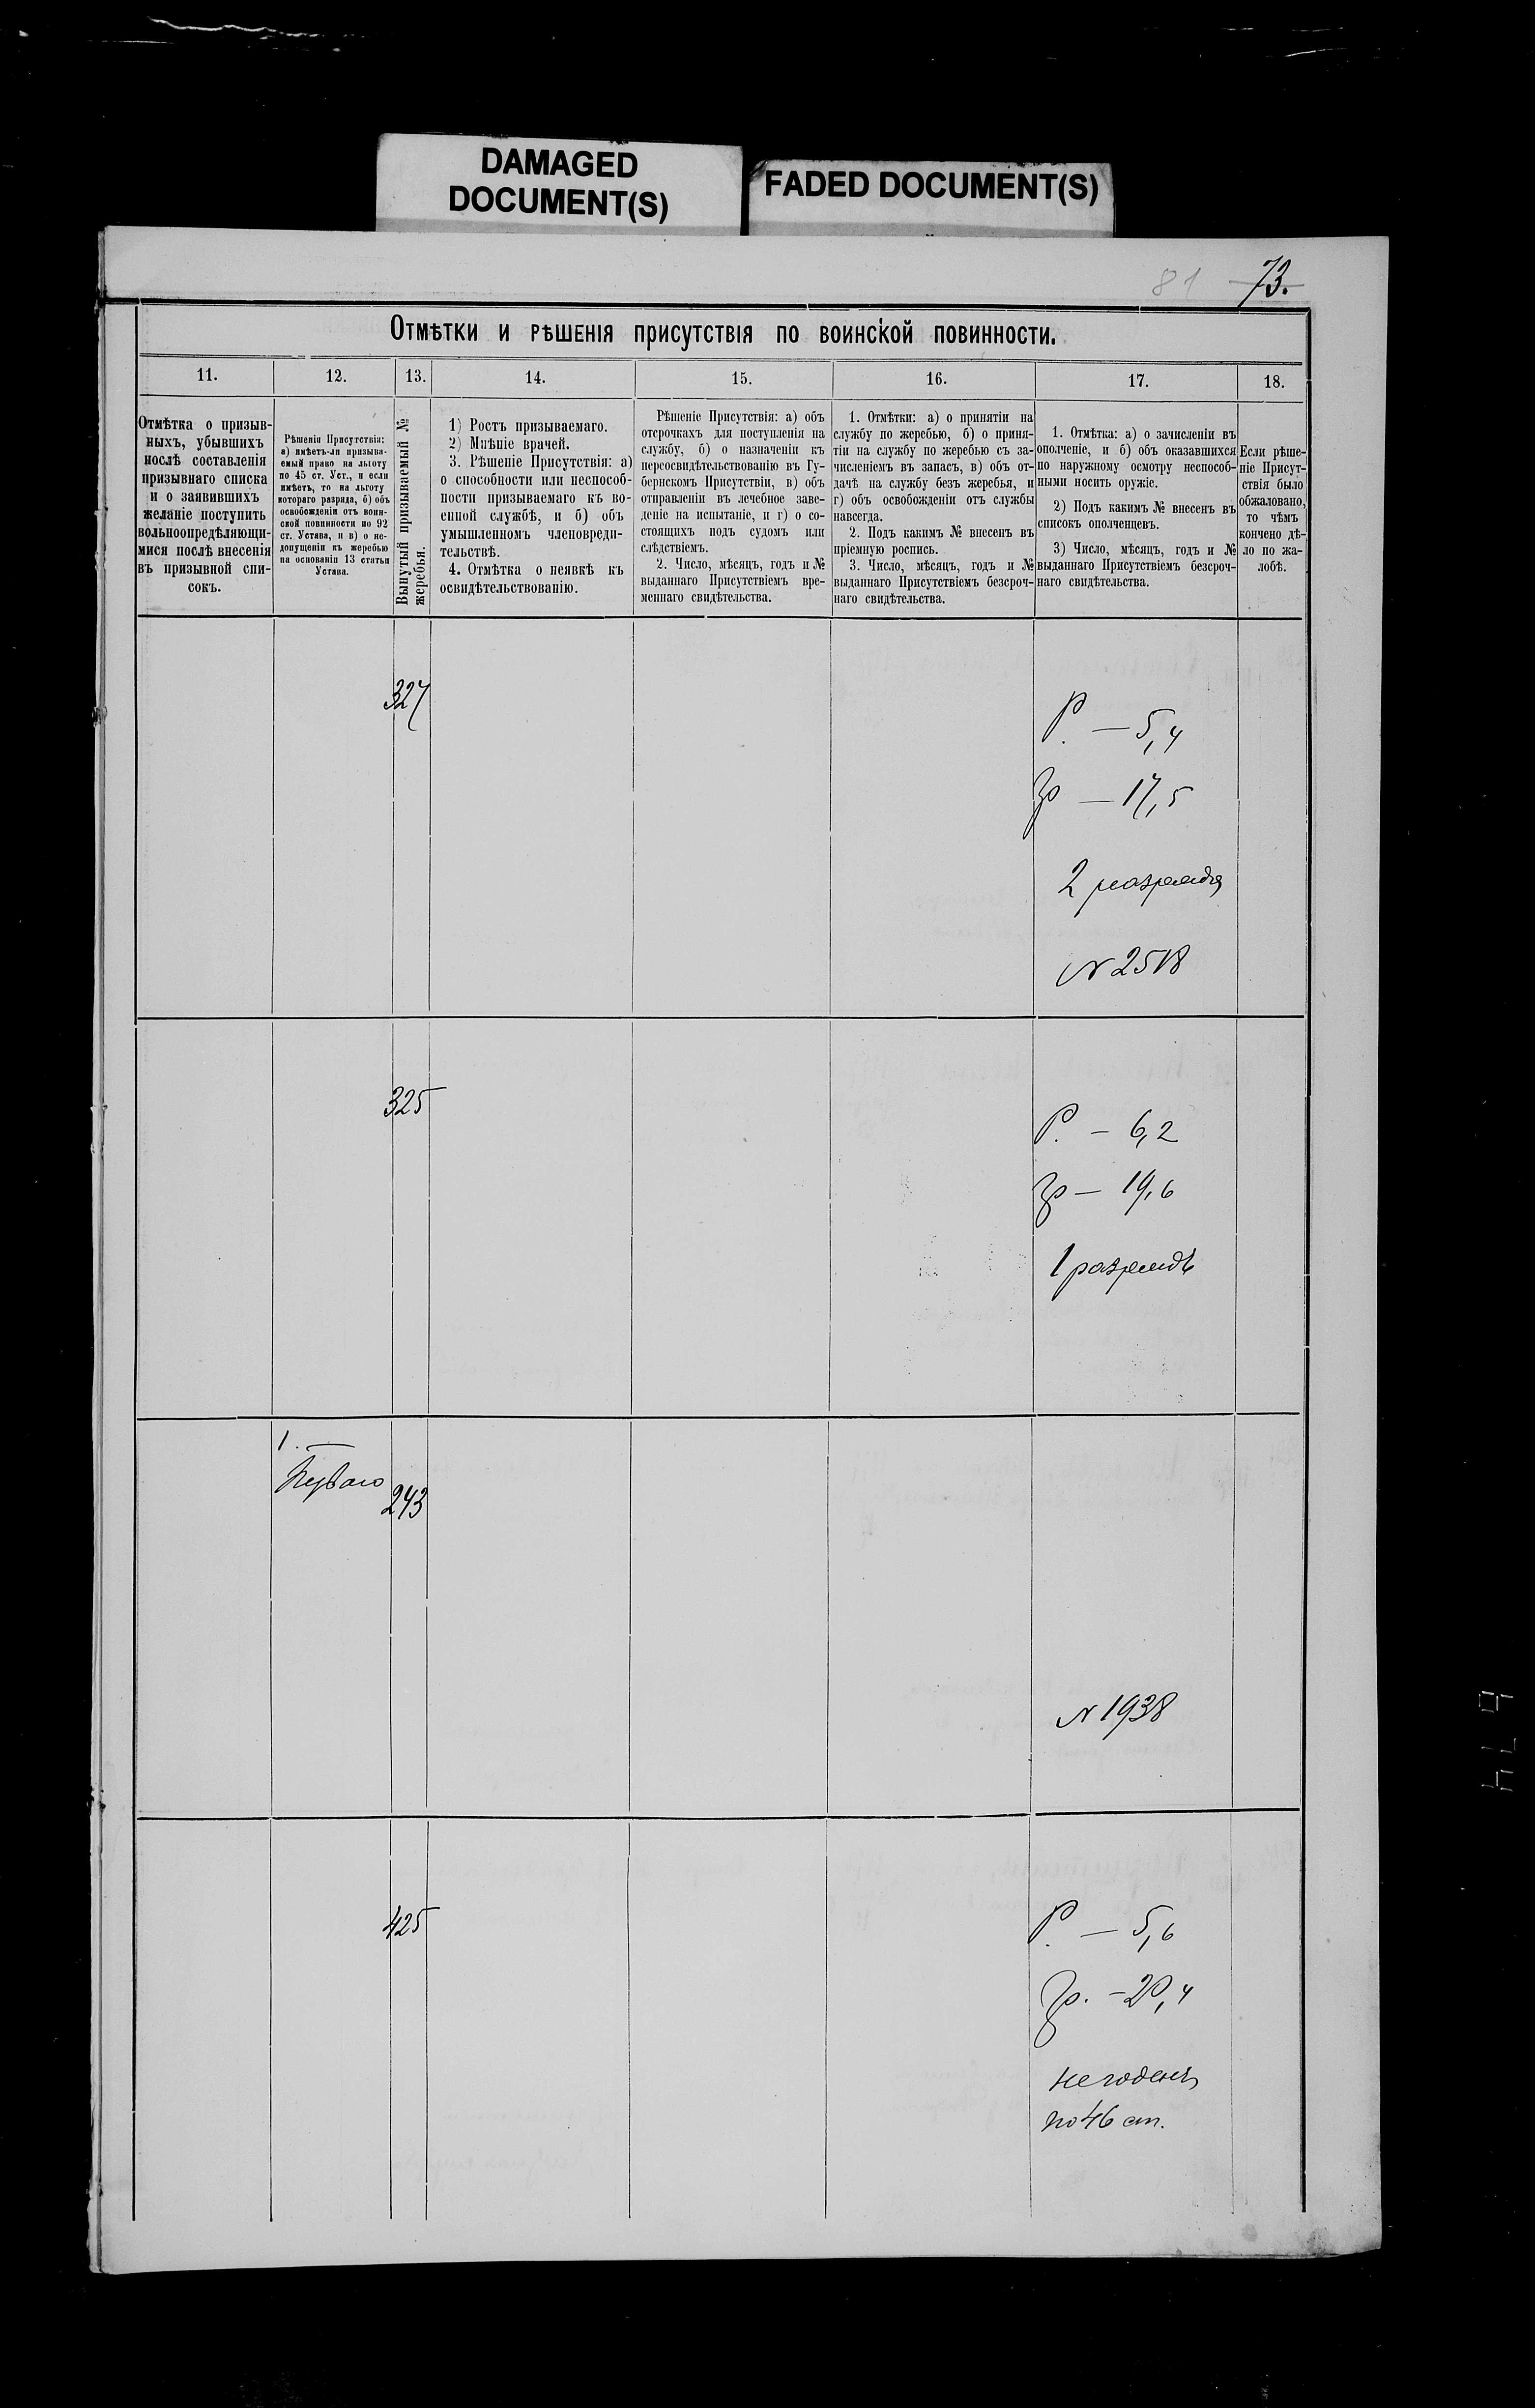 DAMAGED
DOCUMENT(S)
FADED DOCUMENT(S)
81 73.
Отмѣтки и рѣшенія присутствія по воинской повинности.
11. 12. 13. 14. 15. 16. 17. 18.
Отмѣтка о призыв-
ныхъ, убывшихъ
послѣ составленія
призывнаго списка
и о заявившихъ
желаніе поступить
вольноопредѣляющи-
мися послѣ внесенія
въ призывной спи-
сокъ.
Рѣшенія Присутствія:
а) имѣетъ-ли призыва-
емый право на льготу
по 45 ст. Уст., и если
имѣетъ, то на льготу
котораго разряда, б) объ
освобожденіи отъ воин-
ской повинности по 92
ст. Устава, и в) о не-
допущеніи къ жеребью
на основаніи 13 статьи
Устава.
Вынутый призываемый №
жеребья.
1) Ростъ призываемаго.
2) Мнѣніе врачей.
3. Рѣшеніе Присутствія: а)
о способности или неспособ-
ности призываемаго къ во-
енной службѣ, и б) объ
умышленномъ членовреди-
тельствѣ.
4. Отмѣтка о неявкѣ къ
освидѣтельствованію.
Рѣшеніе Присутствія: а) объ
отсрочкахъ для поступленія на
службу, б) о назначеніи къ
переосвидѣтельствованію въ Гу-
бернскомъ Присутствіи, в) объ
отправленіи въ лечебное заве-
деніе на испытаніе, и г) о со-
стоящихъ подъ судомъ или
слѣдствіемъ.
2. Число, мѣсяцъ, годъ и №
выданнаго Присутствіемъ вре-
меннаго свидѣтельства.
1. Отмѣтки: а) о принятіи на
службу по жеребью, б) о приня-
тіи на службу по жеребью съ за-
численіемъ въ запасъ, в) объ от-
дачѣ на службу безъ жеребья, и
г) объ освобожденіи отъ службы
навсегда.
2. Подъ какимъ № внесенъ въ
пріемную роспись.
3. Число, мѣсяцъ, годъ и №
выданнаго Присутствіемъ безсроч-
наго свидѣтельства.
1. Отмѣтка: а) о зачисленіи въ
ополченіе, и б) объ оказавшихся
по наружному осмотру неспособ-
ными носить оружіе.
2) Подъ какимъ № внесенъ въ
списокъ ополченцевъ.
3) Число, мѣсяцъ, годъ и №
выданнаго Присутствіемъ безсроч-
наго свидѣтельства.
Если рѣше-
ніе Присут-
ствія было
обжаловано,
то чѣмъ
кончено дѣ-
ло по жа-
лобѣ.
327
Р. — 5,4
Гр — 17,5
2 разряда
N 2518
325
Р. — 6,2
Гр — 19,6
1 разрядъ
1.
243
N 1938
425
Р. — 5,6
Гр. — 20,4
негоденъ
по 46 ст.